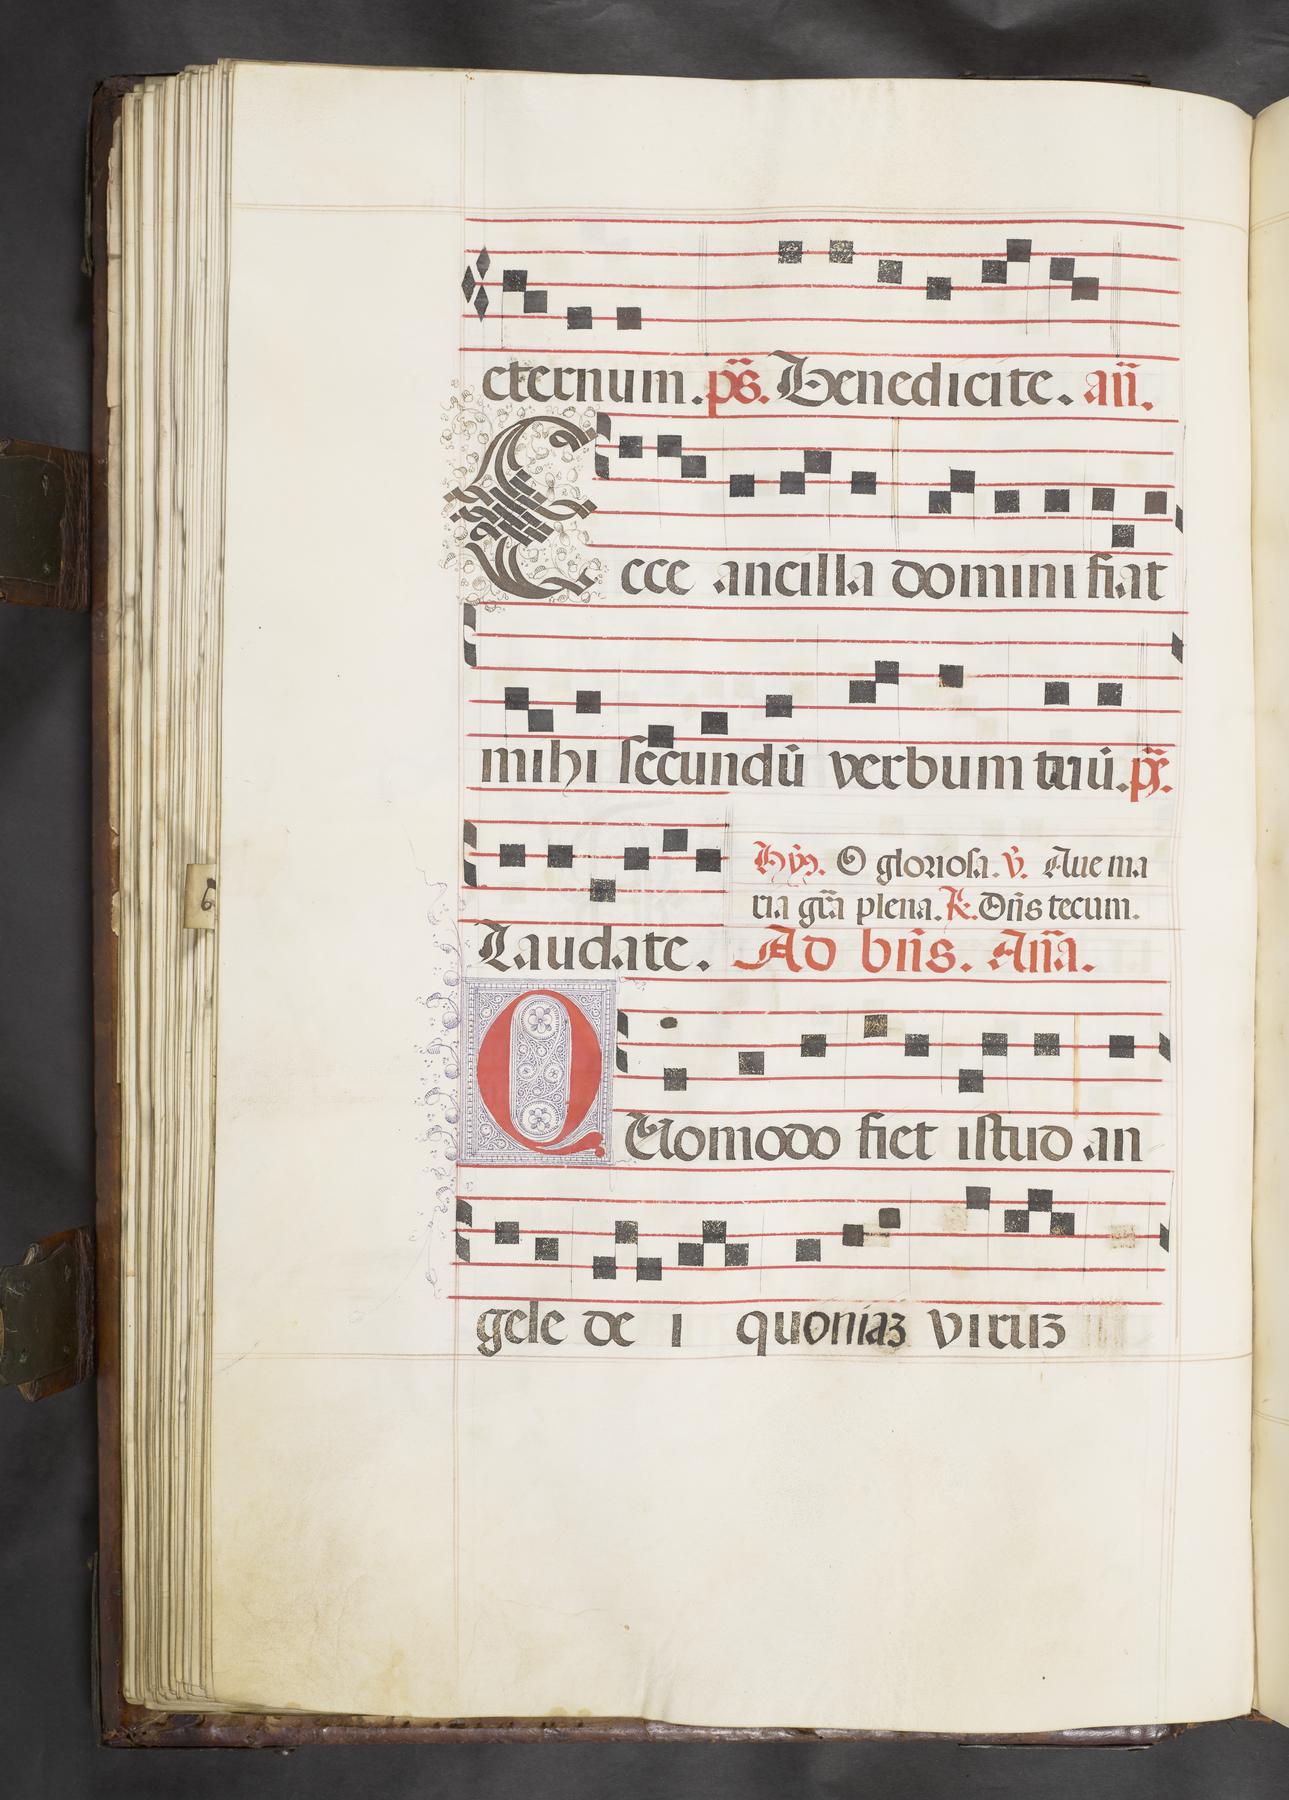 eternum. ps̃. Benedicite. añ.
Ecce ancilla domini fiat
mihi secundū verbum tuū. ps̃.
Hỹ. O gloriosa. v̄. Aue ma
ria grã plena. R. Dñs tecum.
Laudate. Ad bñs. Añã.
QUomodo fiet istud an
gele de i quoniaʒ viruʒ
6